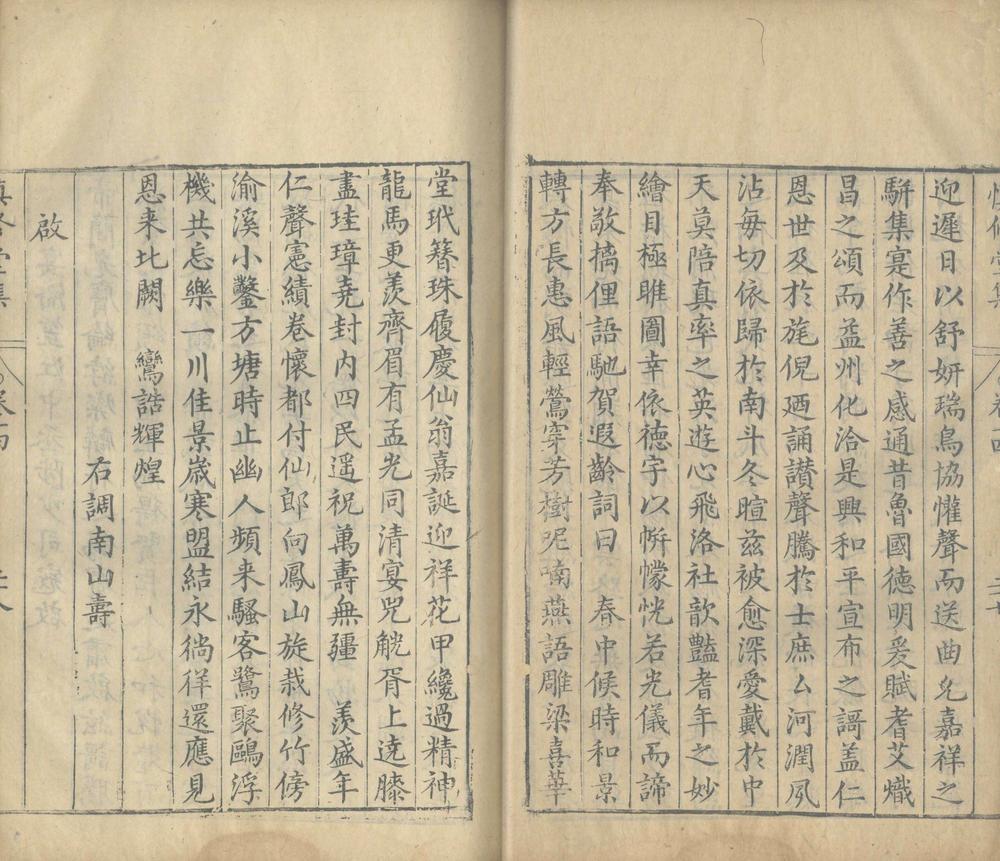 迎遲日以舒妍瑞鳥協懽聲而送曲允嘉祥之
駢集寔作善之感通昔魯國德明爰賦耆艾熾
昌之頌而益州化洽是興和平宣布之謌盖仁
恩世及於旄倪廼誦讃聲騰於士庶厶河潤夙
沾毎切依歸於南斗冬暄兹被愈深愛戴於中
天莫陪真率之英遊心飛洛社歆豔耆年之妙
繪目極睢圖幸依德宇以㡎幪恍若光儀而諦
奉敬摛俚語馳賀遐齡詞曰 春中候時和景
轉方長惠風輕鶯穿芳樹呢喃燕語雕梁喜華
堂玳簪珠履慶仙翁嘉誕迎祥花甲纔過精神
龍馬更羨齊眉有孟光同清宴兕觥胥上遶膝
盡珪璋堯封内四民遥祝萬壽無疆 羨盛年
仁聲憲績卷懷都付仙郎向鳳山旋栽修竹傍
渝溪小鑿方塘時止幽人頻来騷客鷺聚鷗浮
機共忘樂一川佳景歲寒盟結永徜徉還應見
恩来北闕 鸞誥輝煌
右調南山壽
啟